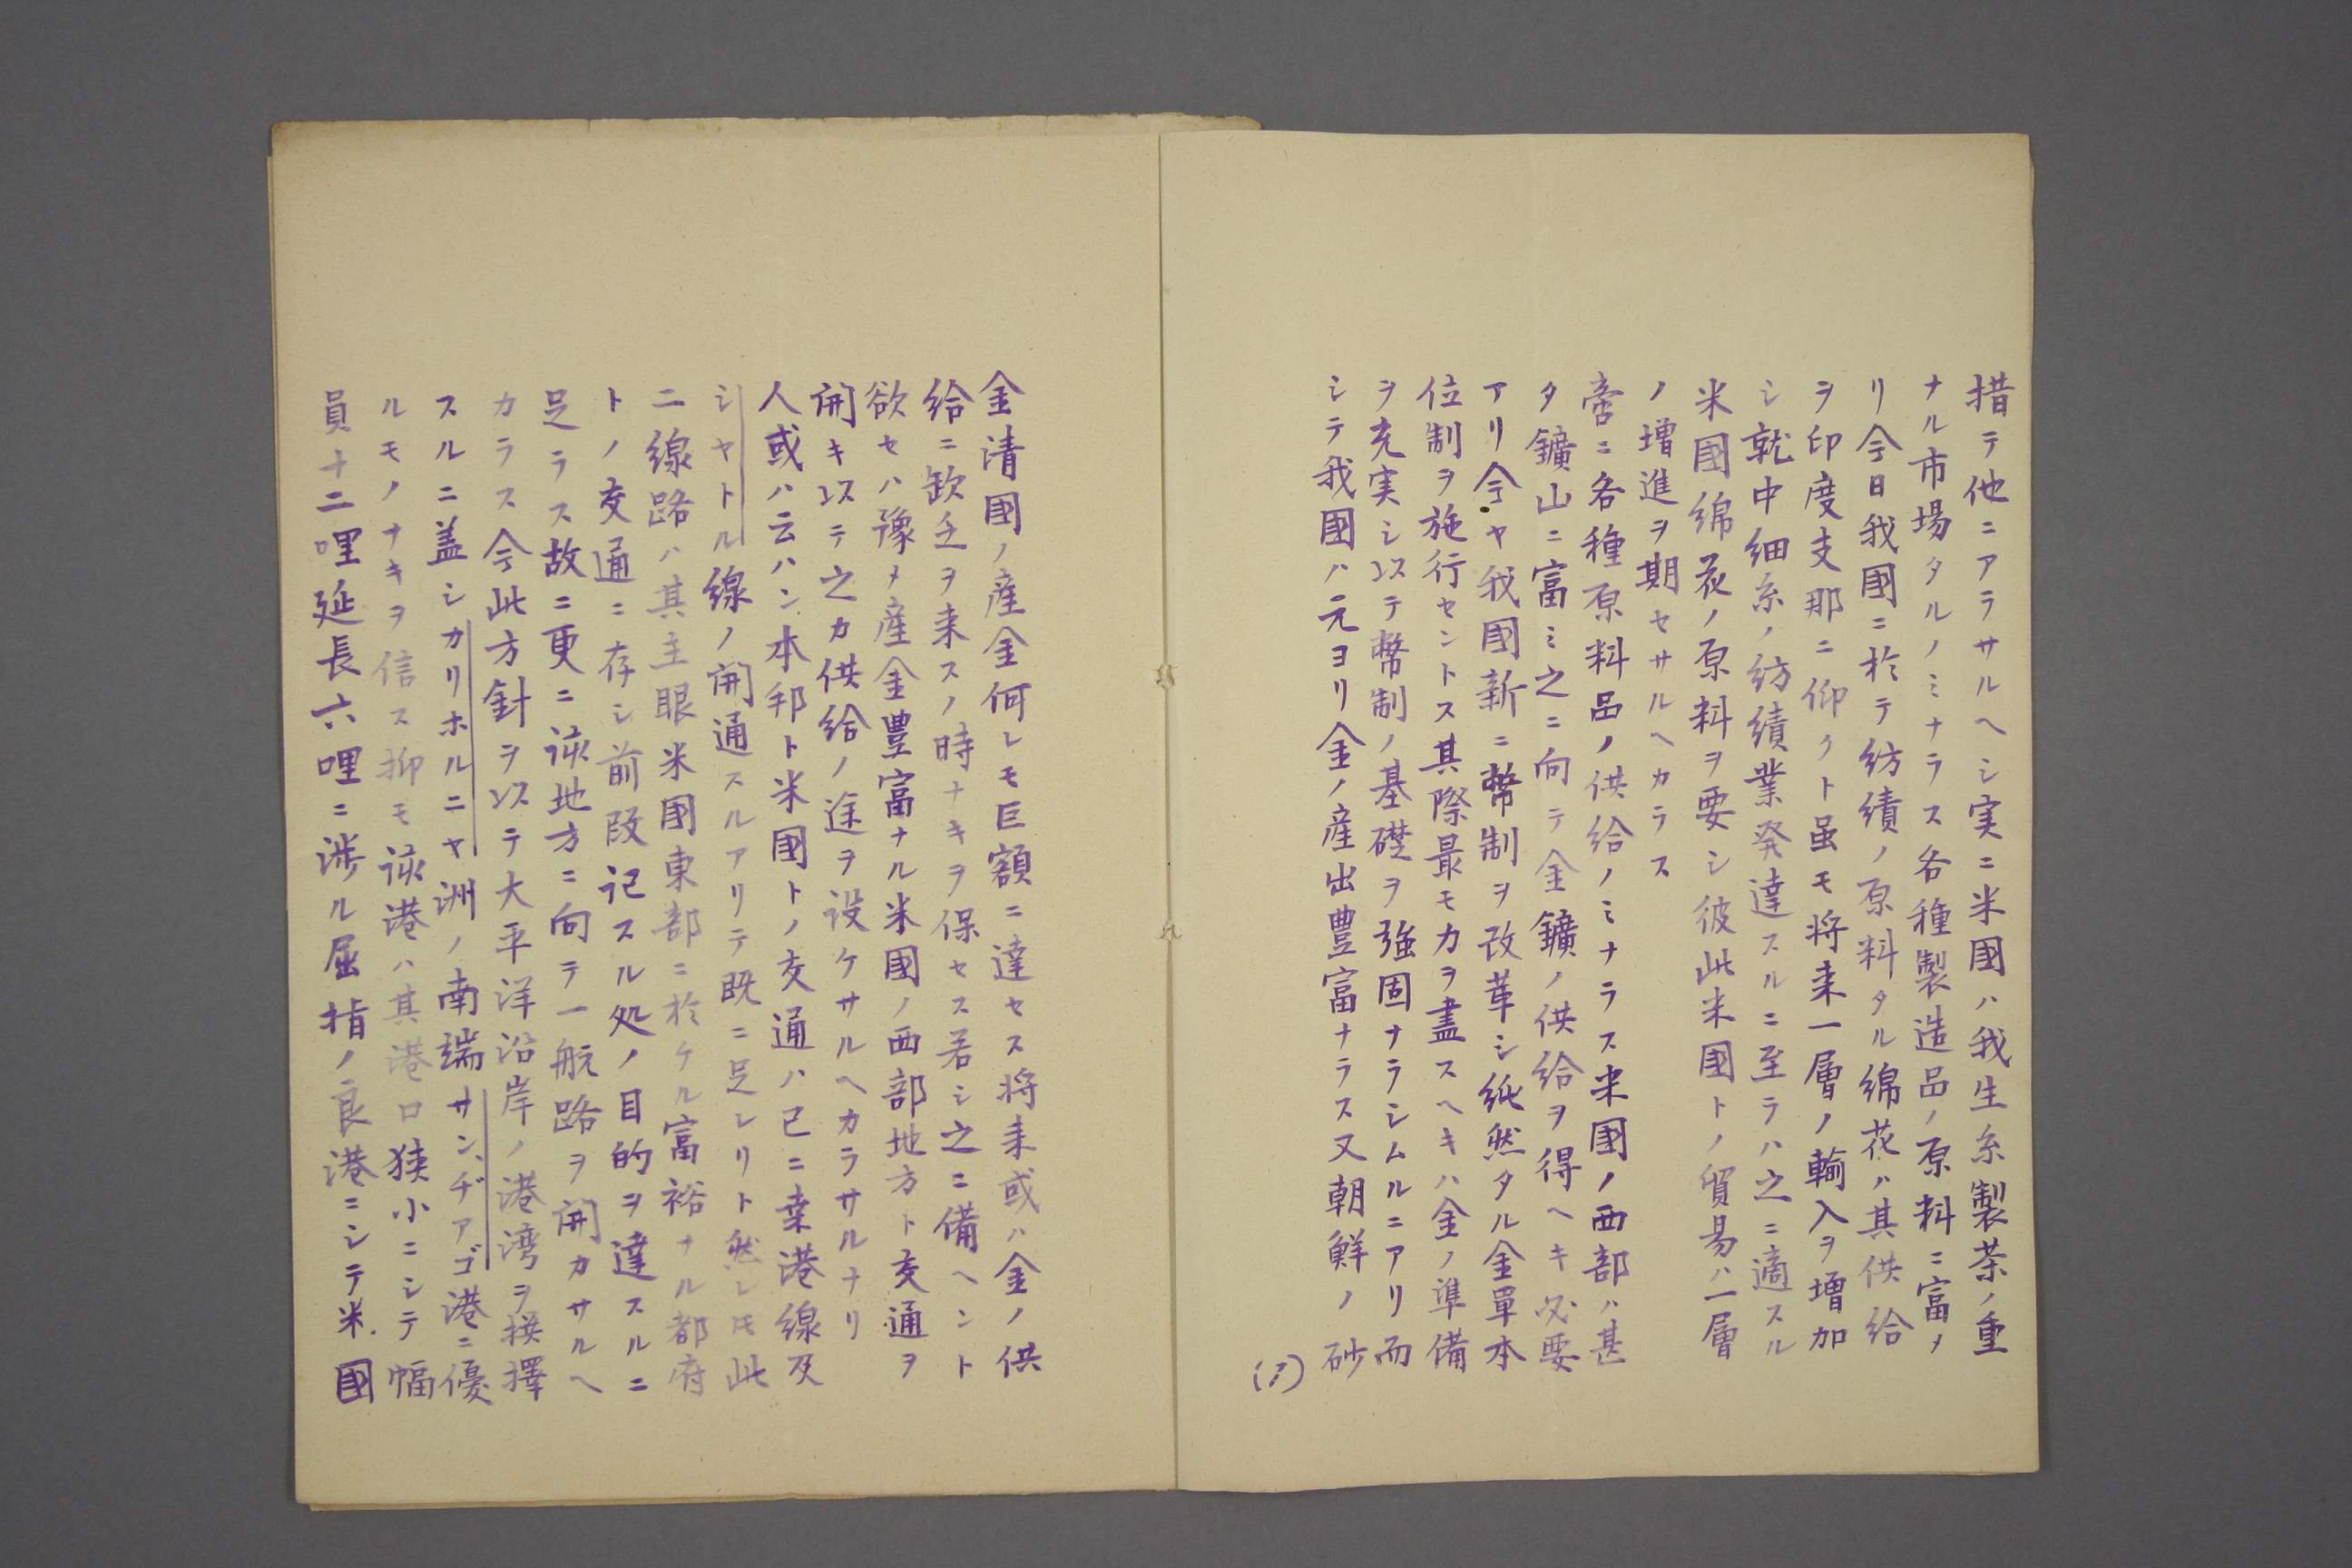 措テ他ニアラサルヘシ実ニ米國ハ我生糸製茶ノ重
ナル市場タルノミナラス各種製造品ノ原料ニ富メ
リ今日我國ニ於テ紡績ノ原料タル綿花ハ其供給
ヲ印度支那ニ仰クト虽モ将来一層ノ輸入ヲ増加
シ就中細糸ノ紡績業発達スルニ至ラハ之ニ適スル
米國綿花ノ原料ヲ要シ彼此米國トノ貿易ハ一層
ノ増進ヲ期セサルヘカラス
啻ニ各種原料品ノ供給ノミナラス米國ノ西部ハ甚
タ鑛山ニ富ミ之ニ向テ金鑛ノ供給ヲ得ヘキ必要
アリ今ヤ我國新ニ幣制ヲ改革シ純然タル金単本
位制ヲ施行セントス其際最モ力ヲ盡スヘキハ金ノ準備
ヲ充実シ以テ幣制ノ基礎ヲ強固ナラシムルニアリ而
シテ我國ハ元ヨリ金ノ産出豊富ナラス又朝鮮ノ砂
金清國ノ産金何レモ巨額ニ達セス将来或ハ金ノ供
給ニ欽乏ヲ来スノ時ナキヲ保セス若シ之ニ備ヘント
欲セハ豫メ産金豊富ナル米國ノ西部地方ト交通ヲ
開キ以テ之カ供給ノ途ヲ設ケサルヘカラサルナリ
人或ハ云ハン本邦ト米國トノ交通ハ已ニ桒港線及
シヤトル線ノ開通スルアリテ既ニ足レリト然レ𪜈此
二線路ハ其主眼米國東部ニ於ケル富裕ナル都府
トノ交通ニ存シ前段記スル処ノ目的ヲ達スルニ
足ラス故ニ更ニ該地方ニ向テ一航路ヲ開カサルヘ
カラス今此方針ヲ以テ大平洋沿岸ノ港湾ヲ撰擇
スルニ盖シカリホルニヤ洲ノ南端サン、ヂアゴ港ニ優
ルモノナキヲ信ス抑モ該港ハ其港口狭小ニシテ幅
員十二哩延長六哩ニ渉ル屈指ノ良港ニシテ米國